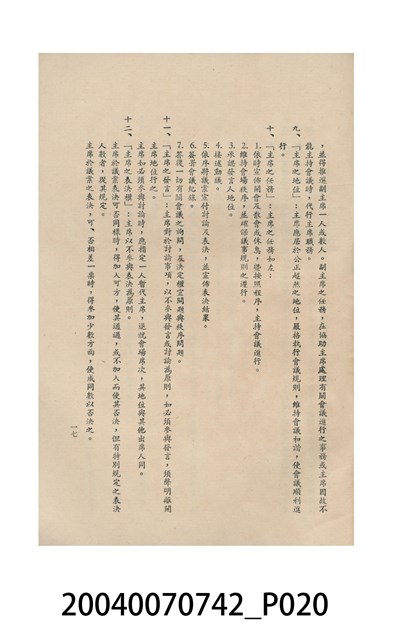 ，並得推選副主席一人或數人。副主席之任務，在協助主席處理有關會議進行之事務或主席因故不
能主持會議時，代行主席職務。
九、「主席之地位」：主席應居於公正超然之地位，嚴格執行會議規則，維持會議和諧，使會議順利進
行。
十、「主席之任務」：主席之任務如左：
1.依時宣佈開會及散會或休息，暨按照程序，主持會議進行。
2.維持會場秩序，並確保議事規則之遵行。
3.承認發言人地位。
4.接述動議。
5.依序將議案宣付討論及表決，並宣佈表決結果。
6.簽署會議紀錄。
7.答復一切有關會議之詢問，及決定權宜問題與秩序問題。
十一、「主席之發言」：主席對於討論事項，以不參與發言或討論為原則，如必須參與發言，須聲明離開
主席地位行之。
主席如必須參與討論時，應指定一人暫代主席，退就會場席次，其地位與其他出席人同。
十二、「主席之表決權」：主席以不參與表決為原則。
主席於議案表決可否同數時，得加入可方，使其通過，或不加入而使其否決，但有特別規定之表決
人數者，從其規定。
主席於議案之表決，可、否相差一票時，得參加少數方面，使成同數以否決之。
一七
20040070742_P020